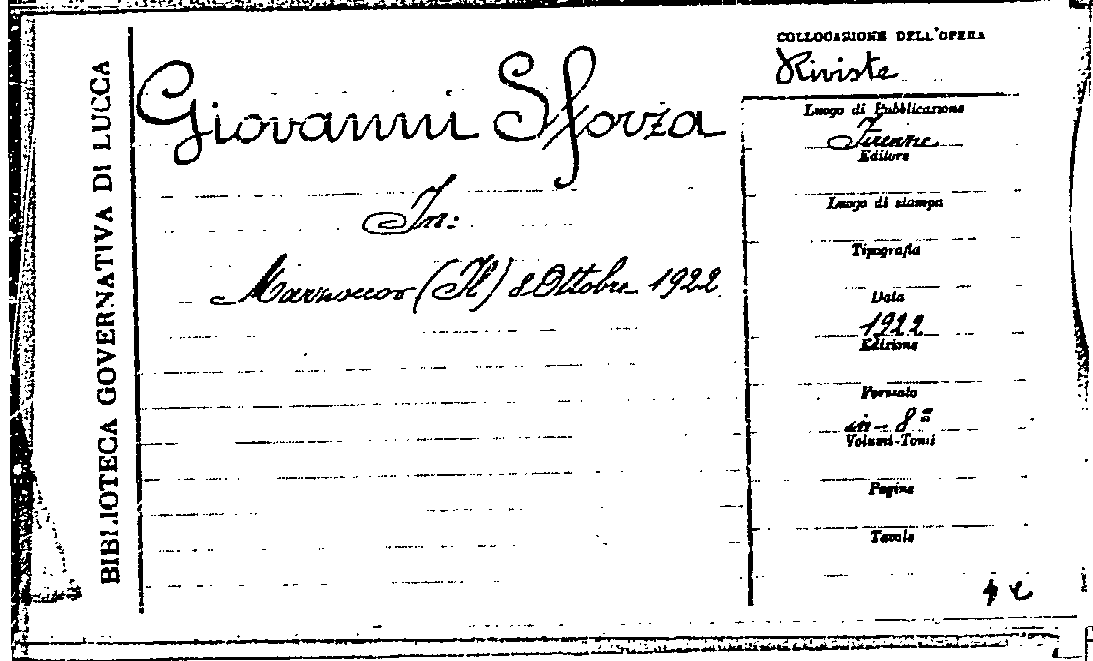 BIBLIOTECA GOVERNATIVA DI LUCCA
Giovanni Sforza
In:
Marzocco (Il) 8 Ottobre 1922
COLLOCAZIONE DELL'OPERA
Riviste
Luogo di Pubblicazione
Firenze
Editore
Luogo di stampa
Tipografia
Data
1922
Edizione
Formato
in-8º
Volumi-Tomi
Pagine
Tavole